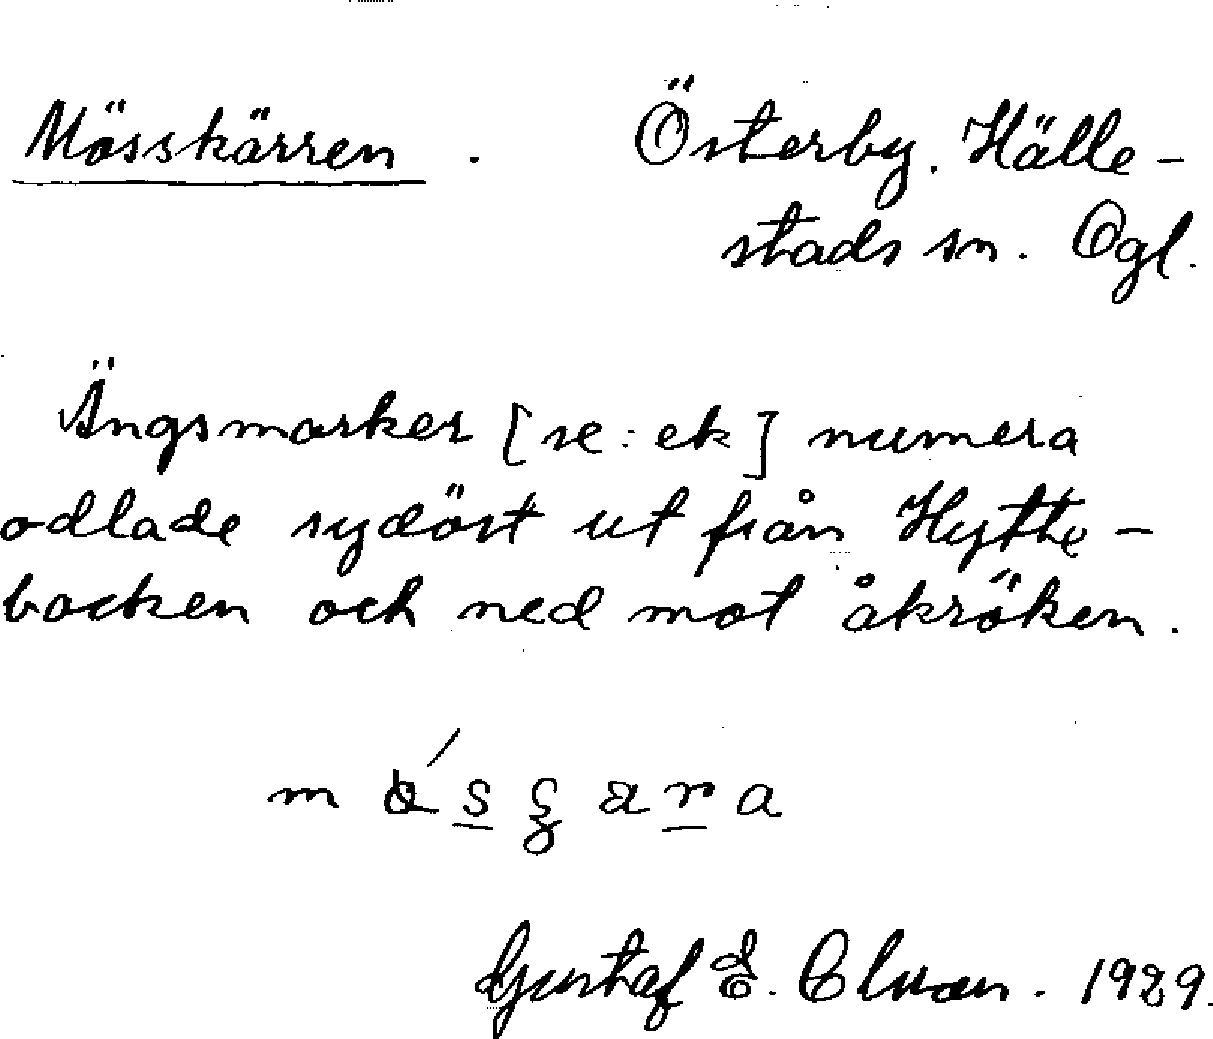 Mösskärren. Österby. Hälle-
stads sn. Ögl.
Ängsmarker [se: ek] numera
odlade sydöst ut från Hytte-
backen och ned mot åkröken.
Gustaf E. 1929.